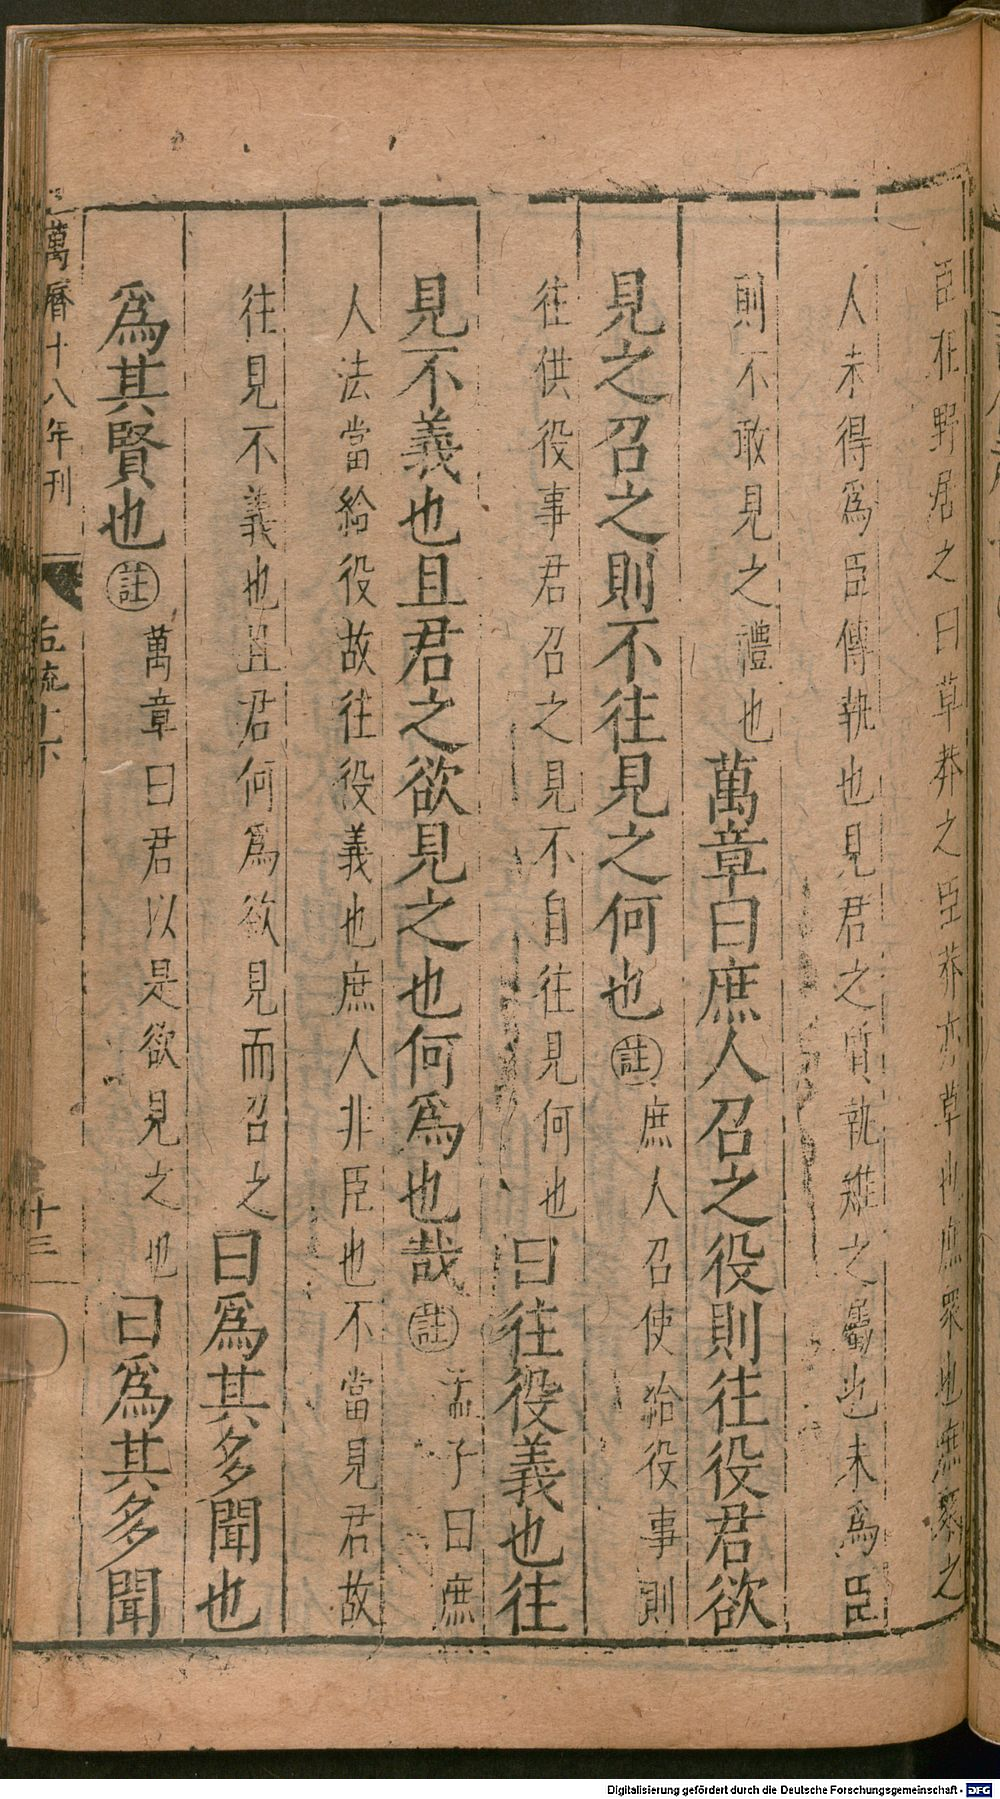 臣在野居之曰草莽之臣莽亦草也庶眾也庶眾之
人未得爲臣傳執也見君之質執雉之屬也未爲臣
則不敢見之禮也萬章曰庶人召之役則往役君欲
見之召之則不往見之何也註庶人召使給役事則
往供役事君召之見不自往見何也曰往役義也往
見不義也且君之欲見之也何爲也哉註孟子曰庶
人法當給役故往役義也庶人非臣也不當見君故
往見不義也且君何爲欲見而召之曰爲其多聞也
爲其賢也註萬章曰君以是欲見之也曰爲其多聞
萬曆十八年刊
孟疏十下
十三
Digitalisierung gefördert durch die Deutsche Forschungsgemeinschaft - DFG